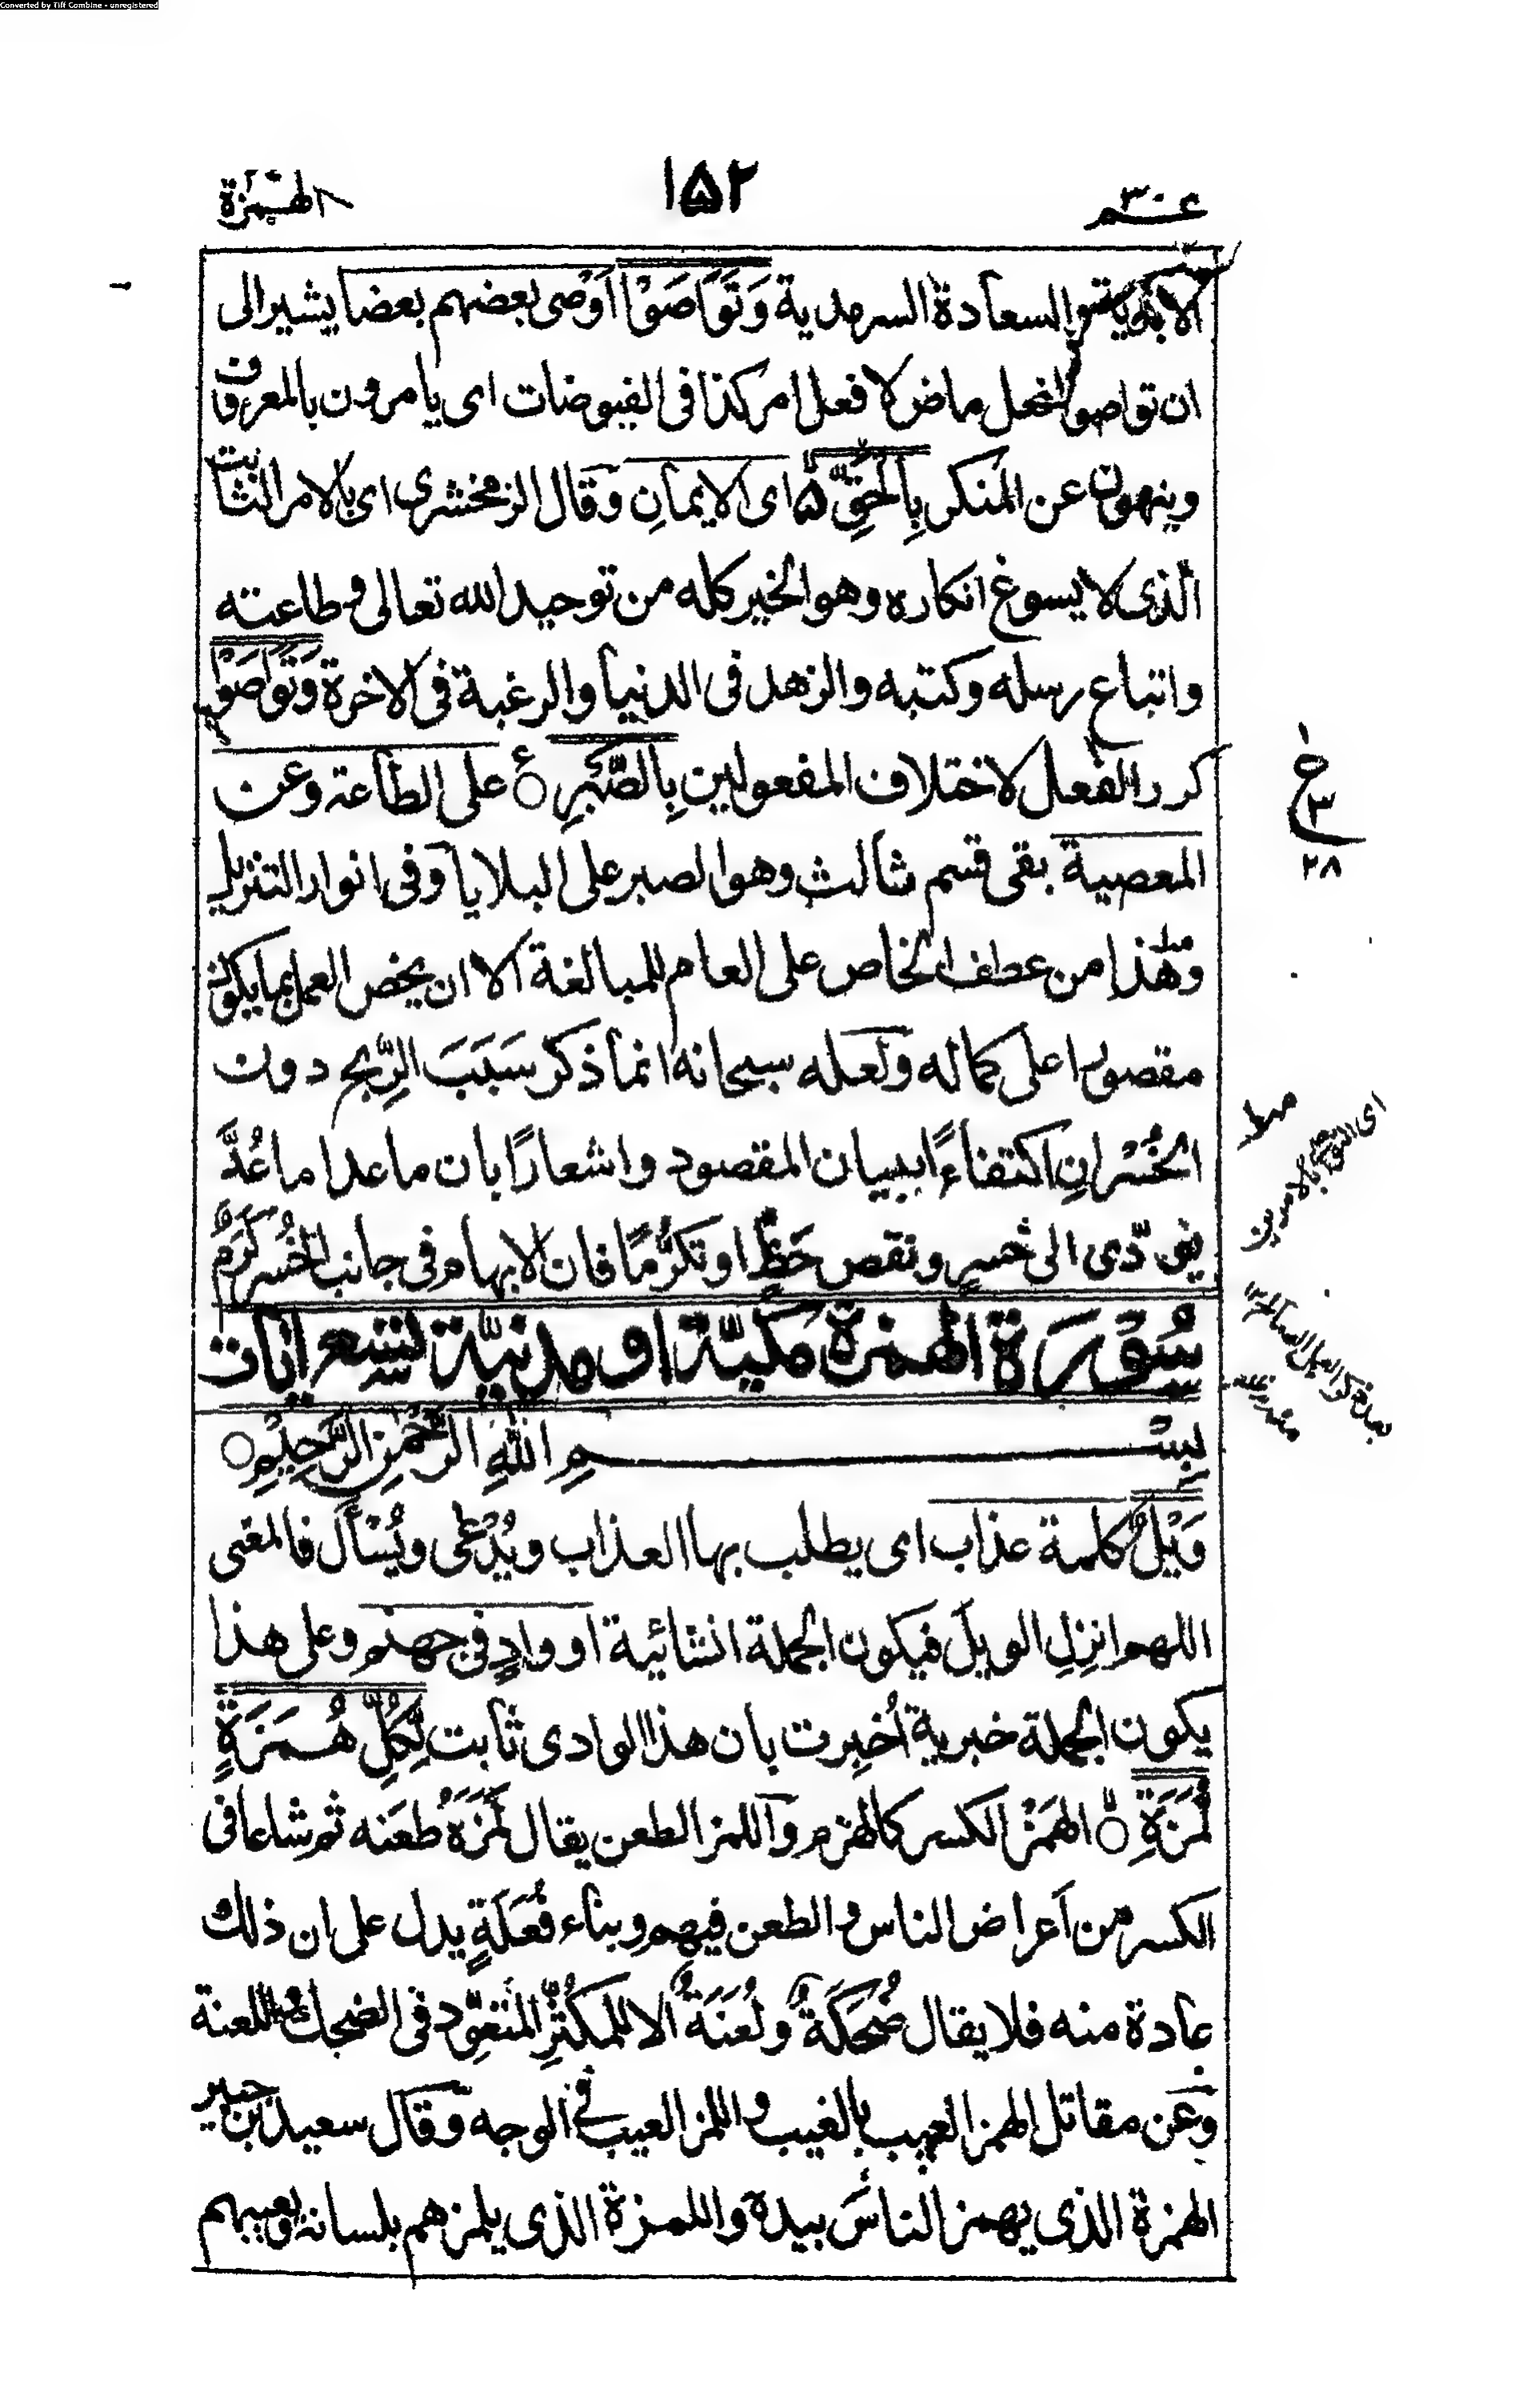 Converted by Tiff Combine - unregistered
عم ٣٠
١٥٢
الهمزة
السعادة السرمدية وَتَوَاصَوْا اَوْصٰى بعضهم بعضا يشير الى
ان تواصوا فعل ماض لا فعل امر كذا فى الفيوضات اى يامرون بالمعروف
وينهون عن المنكر بِالْحَقِّ ۵ اى الايمانِ وَقال الزمخشرى اى بالامر الثابت
الذى لا يسوغ انكاره وهو الخير كله من توحيد الله تعالى وطاعته
واتباع رسله وكتبه والزهد فى الدنيا والرغبة فى الاخرة وَتَوَاصَوْا
كرر الفعل لاختلاف المفعولين بِالصَّبْرِ ○ ع على الطاعة وعن
المعصية بقى قسم ثالث وهو الصبر على البلايا وَفى انوار التنزيل
وهٰذا من عطف الخاص على العام للمبالغة الا ان يخص العمل بما يكون
مقصورا على كماله وَلعله سبحانه انما ذكر سَبَبَ الرِّبح دون
الخُسْرانِ اكتفاءً ببيان المقصود واشعارًا بان ما عدا ما عُدَّ
يؤدّى الى خسرٍ ونقص حَظٍّ او تكرُّمًا فان الابهام فى جانب الخُسر كَرَمٌ
سُوْرَة الهمزة مَكيّة او مدنيّة تسع اٰيات
بِسْــــمِ اللّٰهِ الرَّحْمٰنِ الرَّحِيْمِ ○
وَيْلٌ كلمة عذاب اى يطلب بها العذاب ويُدْعٰى ويُسْأل فالمعنى
اللهم انزِلِ الويلَ فيكون الجملة انشائية او وادٍ فى جهنم وعلى هذا
يكون الجملة خبرية اُخبِرت بان هذا الوادى ثابت لِّكُلِّ هُمَزَةٍ
لُّمَزَةِ ○ الهَمْزُ الكسر كالهزم وَاللمز الطعن يقال لَمَزَهٗ طعَنه ثم شاعا فى
الكسر من اَعراض الناس والطعن فيهم وبناء فُعَلَةٍ يدل على ان ذلك
عادة منه فلا يقال ضُحَكَةٌ ولُعَنَةٌ الا للمكثِرِ المتعوِّد فى الضحك واللعنة
وَعن مقاتل الهمز العيب بالغيب واللمز العيب فى الوجه وَقال سعيد بن جبير
الهمزة الذى يهمز الناسَ بيده واللمزة الذى يلمزهم بلسانه ويعيبهم
ع
٣
٢٨